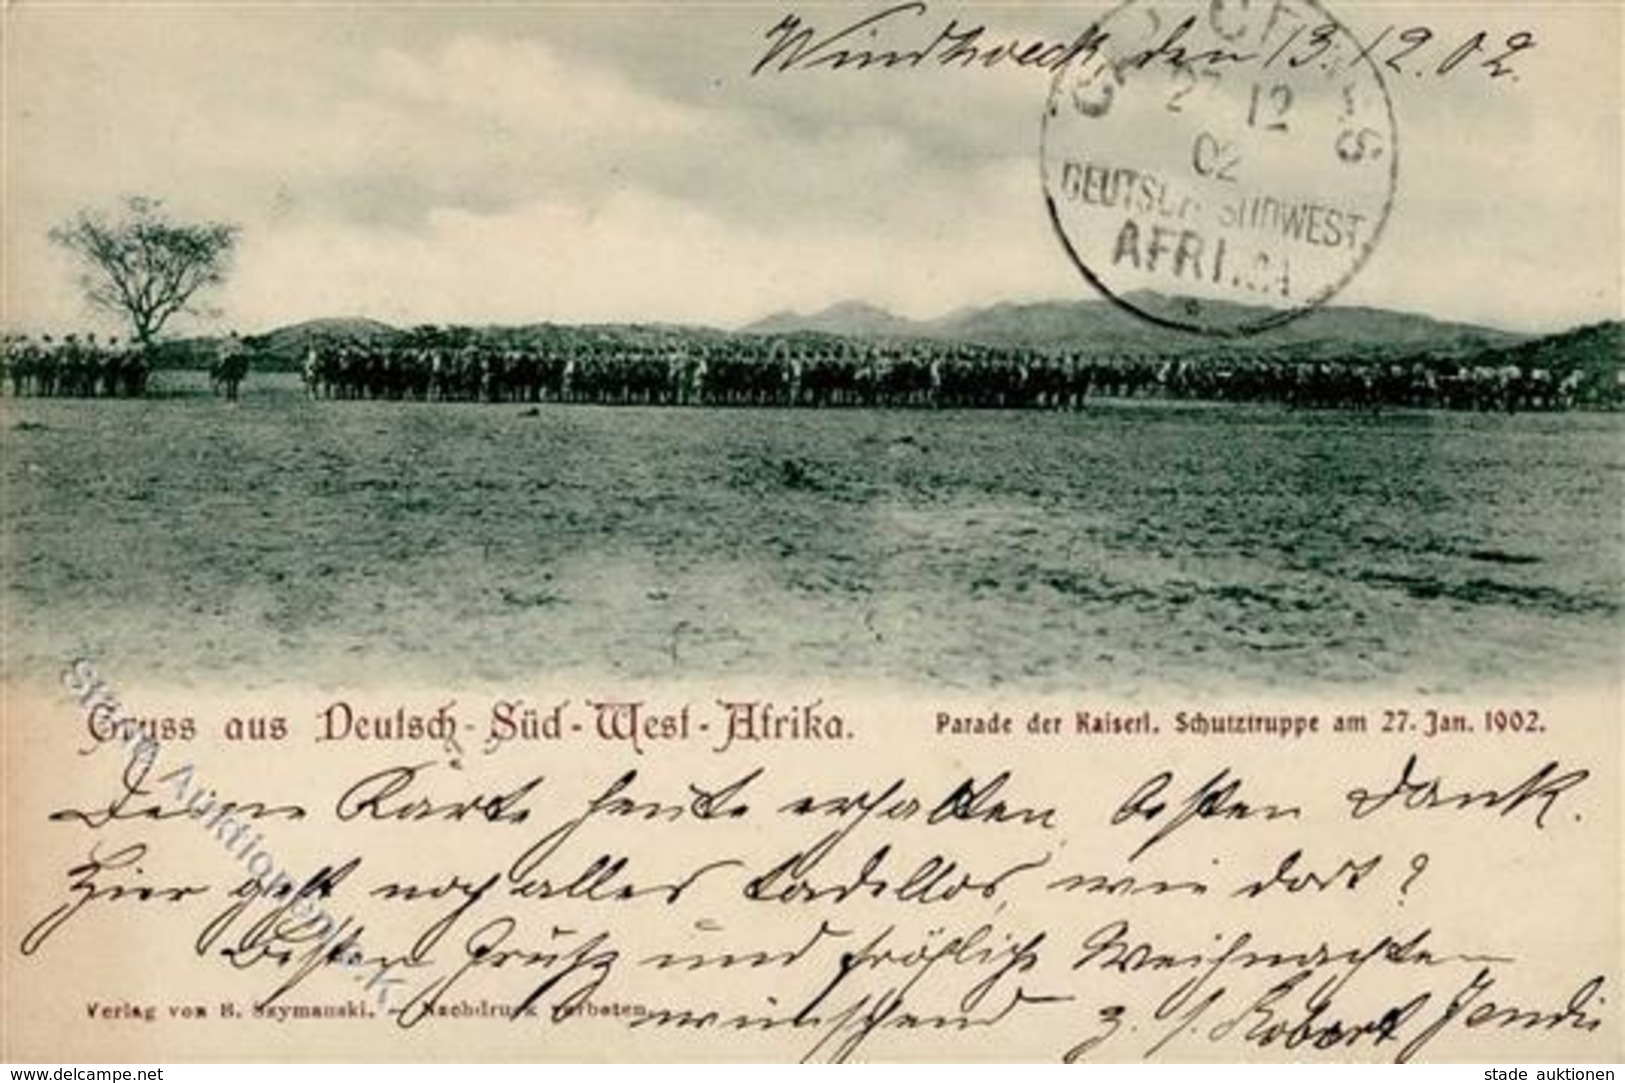 Windhoeck, den 13.12.02.
27 12
02
DEUTSCH SÜDWEST
AFRIKA
Gruss aus Deutsch-Süd-West-Afrika. Parade der Kaiserl. Schutztruppe am 27. Jan. 1902.
Deine Karte heute erhalten, besten Dank.
Hier geht noch alles tadellos, wie dort?
Besten Gruß und fröhliche Weihnachten
wünschend z. Z. Robert
Verlag von B. Szymanski. — Nachdruck verboten.
Stade Auktionen k.k
www.delcampe.net stade auktionen